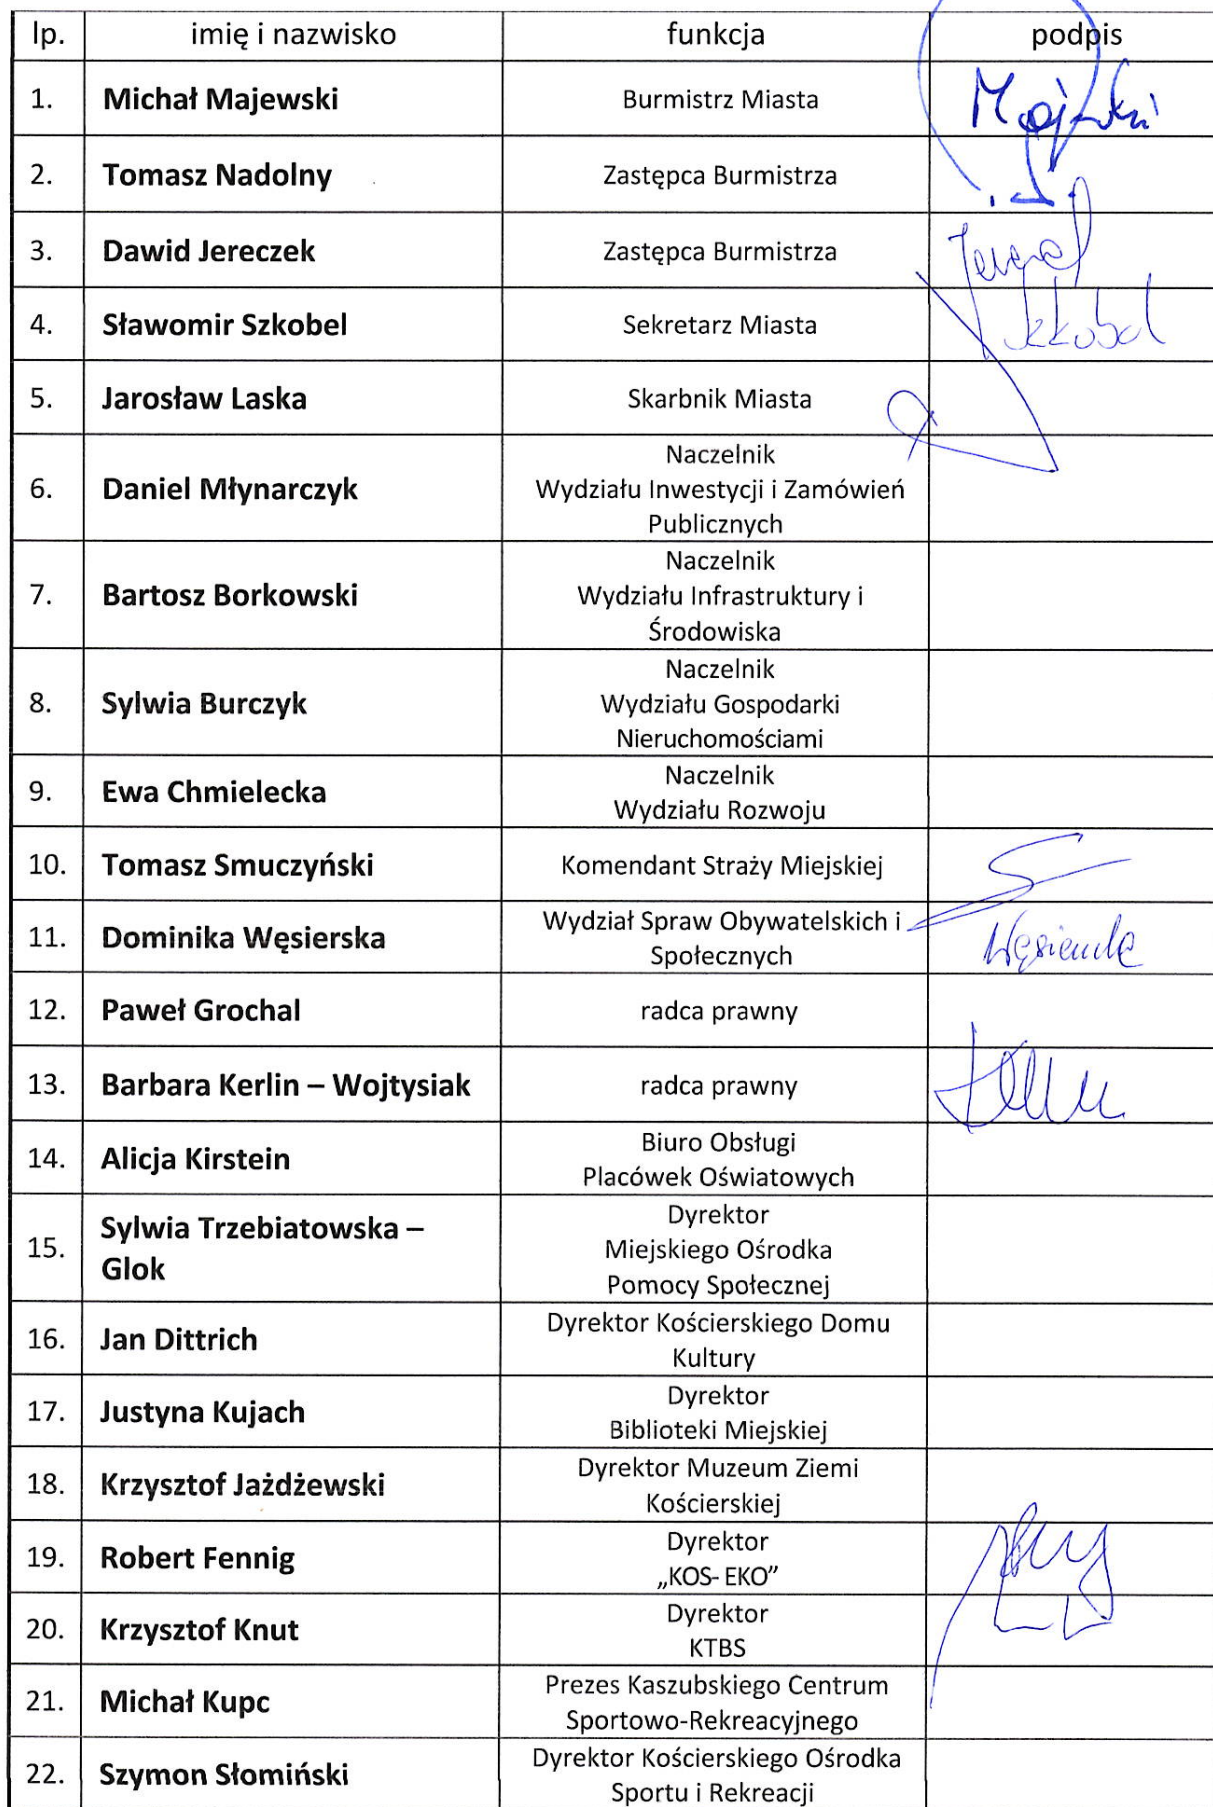 lp. imię i nazwisko funkcja podpis
1. Michał Majewski Burmistrz Miasta Majewski
2. Tomasz Nadolny Zastępca Burmistrza
3. Dawid Jereczek Zastępca Burmistrza
4. Sławomir Szkobel Sekretarz Miasta Szkobel
5. Jarosław Laska Skarbnik Miasta
6. Daniel Młynarczyk Naczelnik
Wydziału Inwestycji i Zamówień
Publicznych
7. Bartosz Borkowski Naczelnik
Wydziału Infrastruktury i
Środowiska
8. Sylwia Burczyk Naczelnik
Wydziału Gospodarki
Nieruchomościami
9. Ewa Chmielecka Naczelnik
Wydziału Rozwoju
10. Tomasz Smuczyński Komendant Straży Miejskiej
11. Dominika Węsierska Wydział Spraw Obywatelskich i
Społecznych Węsierska
12. Paweł Grochal radca prawny
13. Barbara Kerlin – Wojtysiak radca prawny
14. Alicja Kirstein Biuro Obsługi
Placówek Oświatowych
15. Sylwia Trzebiatowska –
Glok Dyrektor
Miejskiego Ośrodka
Pomocy Społecznej
16. Jan Dittrich Dyrektor Kościerskiego Domu
Kultury
17. Justyna Kujach Dyrektor
Biblioteki Miejskiej
18. Krzysztof Jażdżewski Dyrektor Muzeum Ziemi
Kościerskiej
19. Robert Fennig Dyrektor
„KOS- EKO”
20. Krzysztof Knut Dyrektor
KTBS
21. Michał Kupc Prezes Kaszubskiego Centrum
Sportowo-Rekreacyjnego
22. Szymon Słomiński Dyrektor Kościerskiego Ośrodka
Sportu i Rekreacji